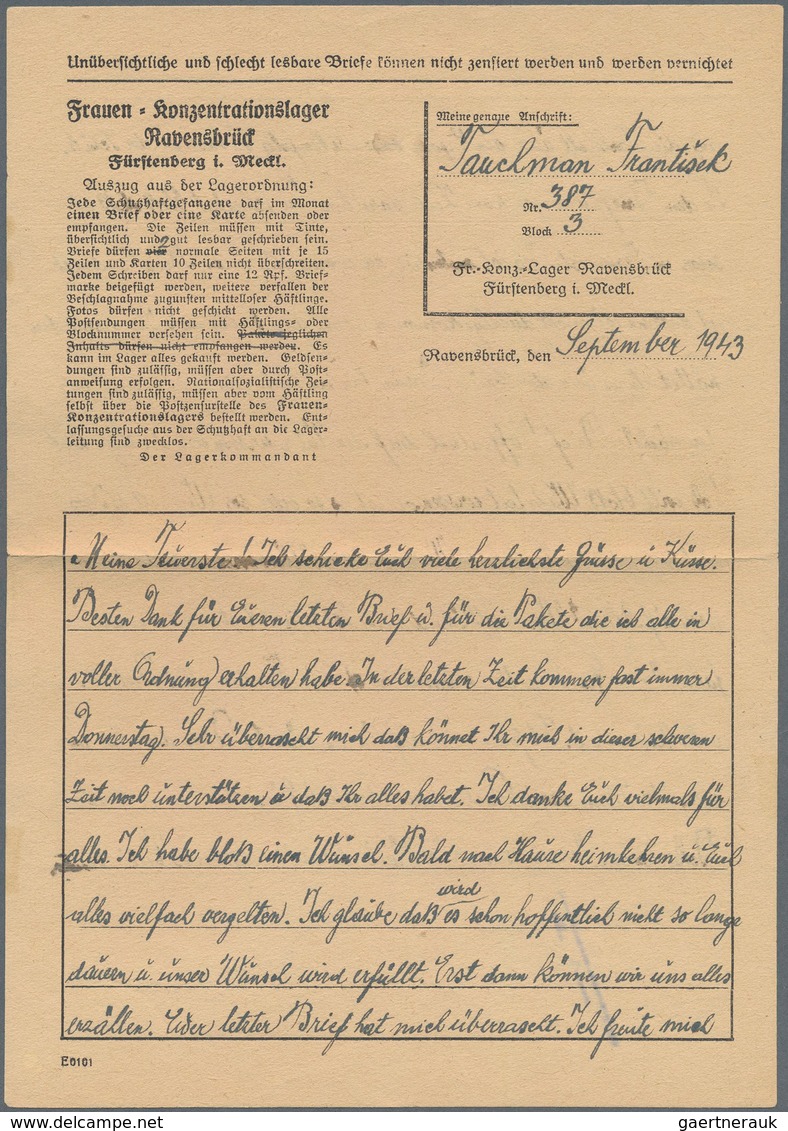 Unübersichtliche und schlecht lesbare Briefe können nicht zensiert werden und werden vernichtet
Frauen-Konzentrationslager
Ravensbrück
Fürstenberg i. Meckl.
Auszug aus der Lagerordnung:
Jede Schutzhaftgefangene darf im Monat
einen Brief oder eine Karte absenden oder
empfangen. Die Zeilen müssen mit Tinte,
übersichtlich und gut lesbar geschrieben sein.
Briefe dürfen vier 2 normale Seiten mit je 15
Zeilen und Karten 10 Zeilen nicht überschreiten.
Jedem Schreiben darf nur eine 12 Rpf. Brief-
marke beigefügt werden, weitere verfallen der
Beschlagnahme zugunsten mittelloser Häftlinge.
Fotos dürfen nicht geschickt werden. Alle
Postsendungen müssen mit Häftlings- oder
Blocknummer versehen sein. Pakete jeglichen
Inhalts dürfen nicht empfangen werden. Es
kann im Lager alles gekauft werden. Geldsen-
dungen sind zulässig, müssen aber durch Post-
anweisung erfolgen. Nationalsozialistische Zei-
tungen sind zulässig, müssen aber vom Häftling
selbst über die Postzensurstelle des Frauen-
Konzentrationslagers bestellt werden. Ent-
lassungsgesuche aus der Schutzhaft an die Lager-
leitung sind zwecklos.
Der Lagerkommandant
Meine genaue Anschrift:
Tauchman František
Nr. 387
Block 3
Fr.-Konz.-Lager Ravensbrück
Fürstenberg i. Meckl.
Ravensbrück, den September 1943
Meine Teuerste! Ich schicke Euch viele herzlichste Grüsse u Küsse.
Besten Dank für Eueren letzten Brief u. für die Pakete die ich alle in
voller Ordnung erhalten habe. In der letzten Zeit kommen fast immer
Donnerstag. Sehr überrascht mich daß könnet Ihr mich in dieser schweren
Zeit noch unterstützen u daß Ihr alles habet. Ich danke Euch vielmals für
alles. Ich habe bloß einen Wunsch. Bald nach Hause heimkehren u. Euch
alles vielfach vergelten. Ich glaube daß es wird schon hoffentlich nicht so lange
dauern u. unser Wunsch wird erfüllt. Erst dann können wir uns alles
erzällen. Euer letzter Brief hat mich überrascht. Ich freute mich
E0101
gaertnerauk